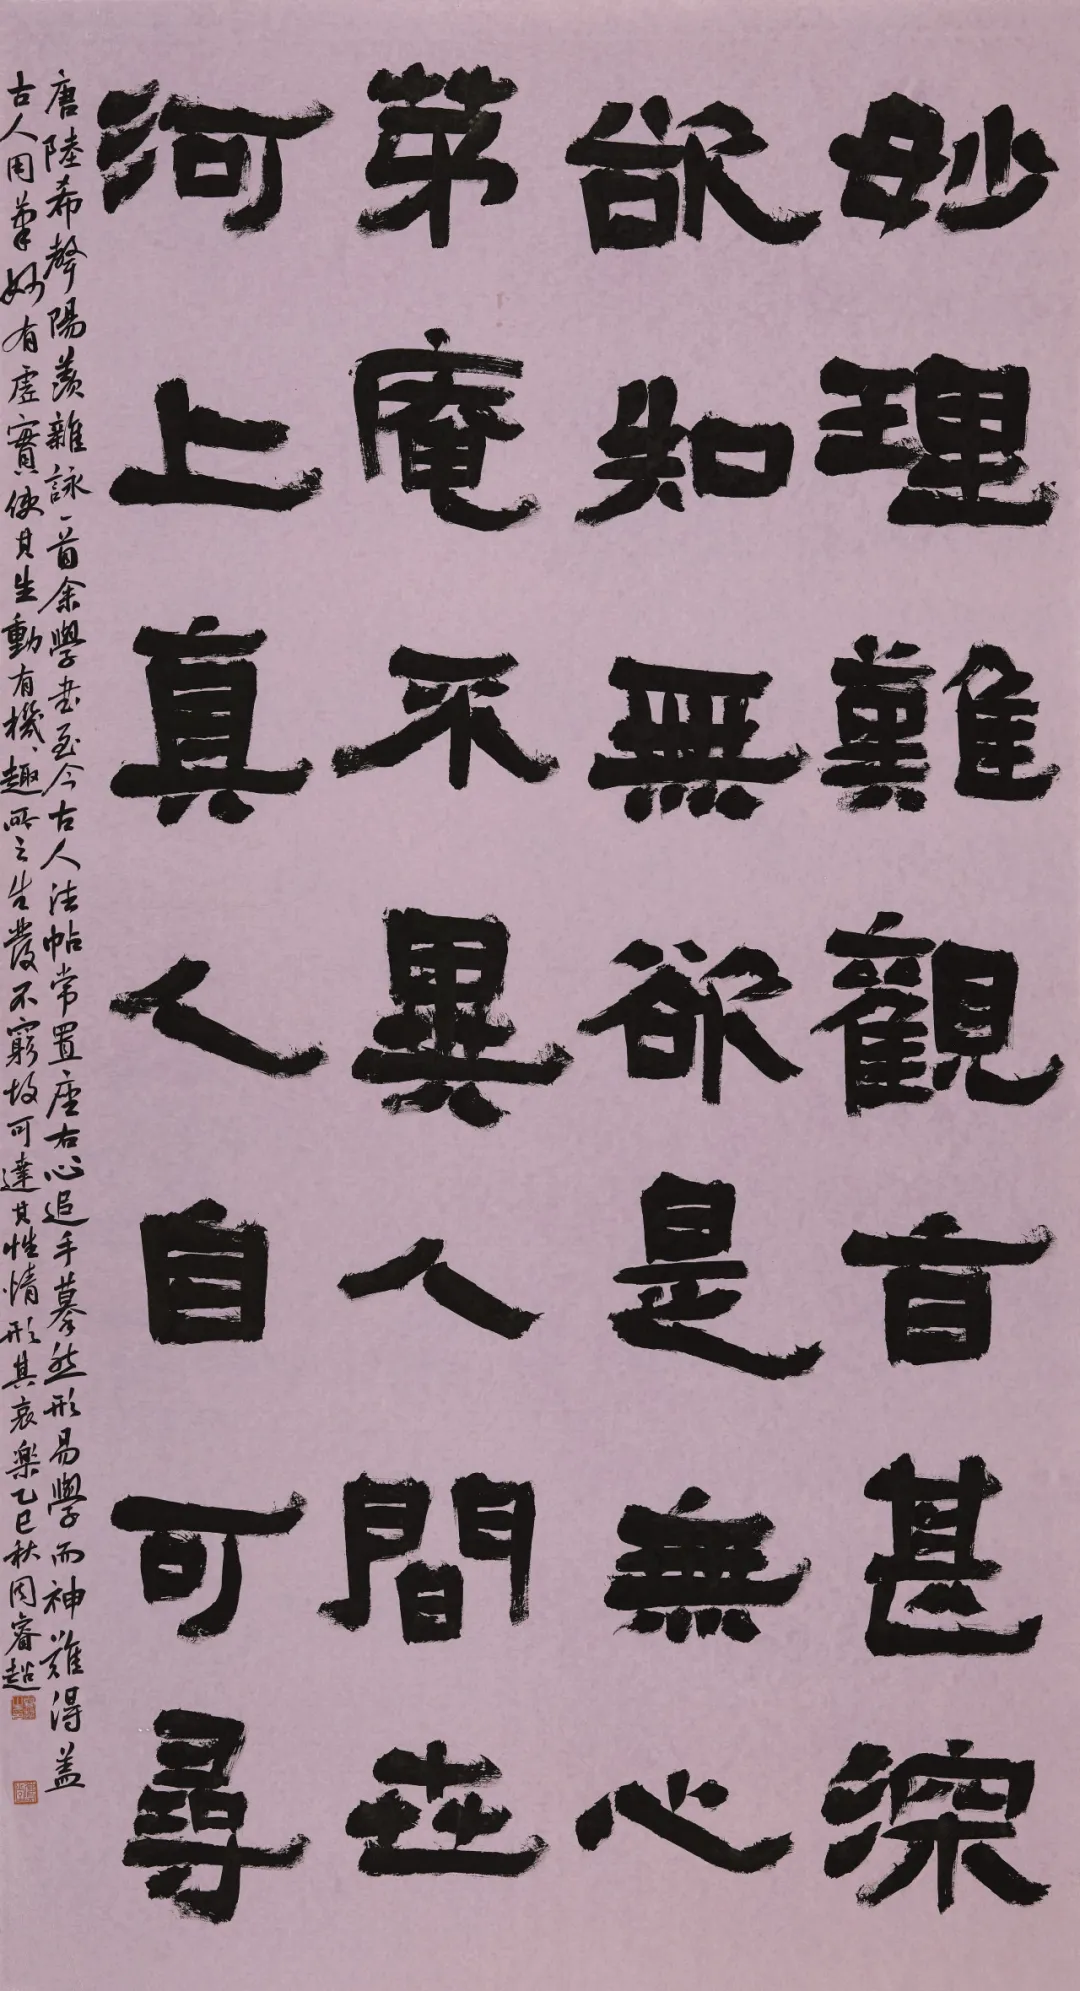 妙理難觀旨甚深
欲知無欲是無心
茅庵不異人間世
河上真人自可尋
唐陸希聲陽羨雜詠一首余學書至今古人法帖常置座右心追手摹然形易學而神難得盖
古人用筆妙有虛實使其生動有機趣所之生發不窮故可達其性情形其哀樂乙巳秋周睿超